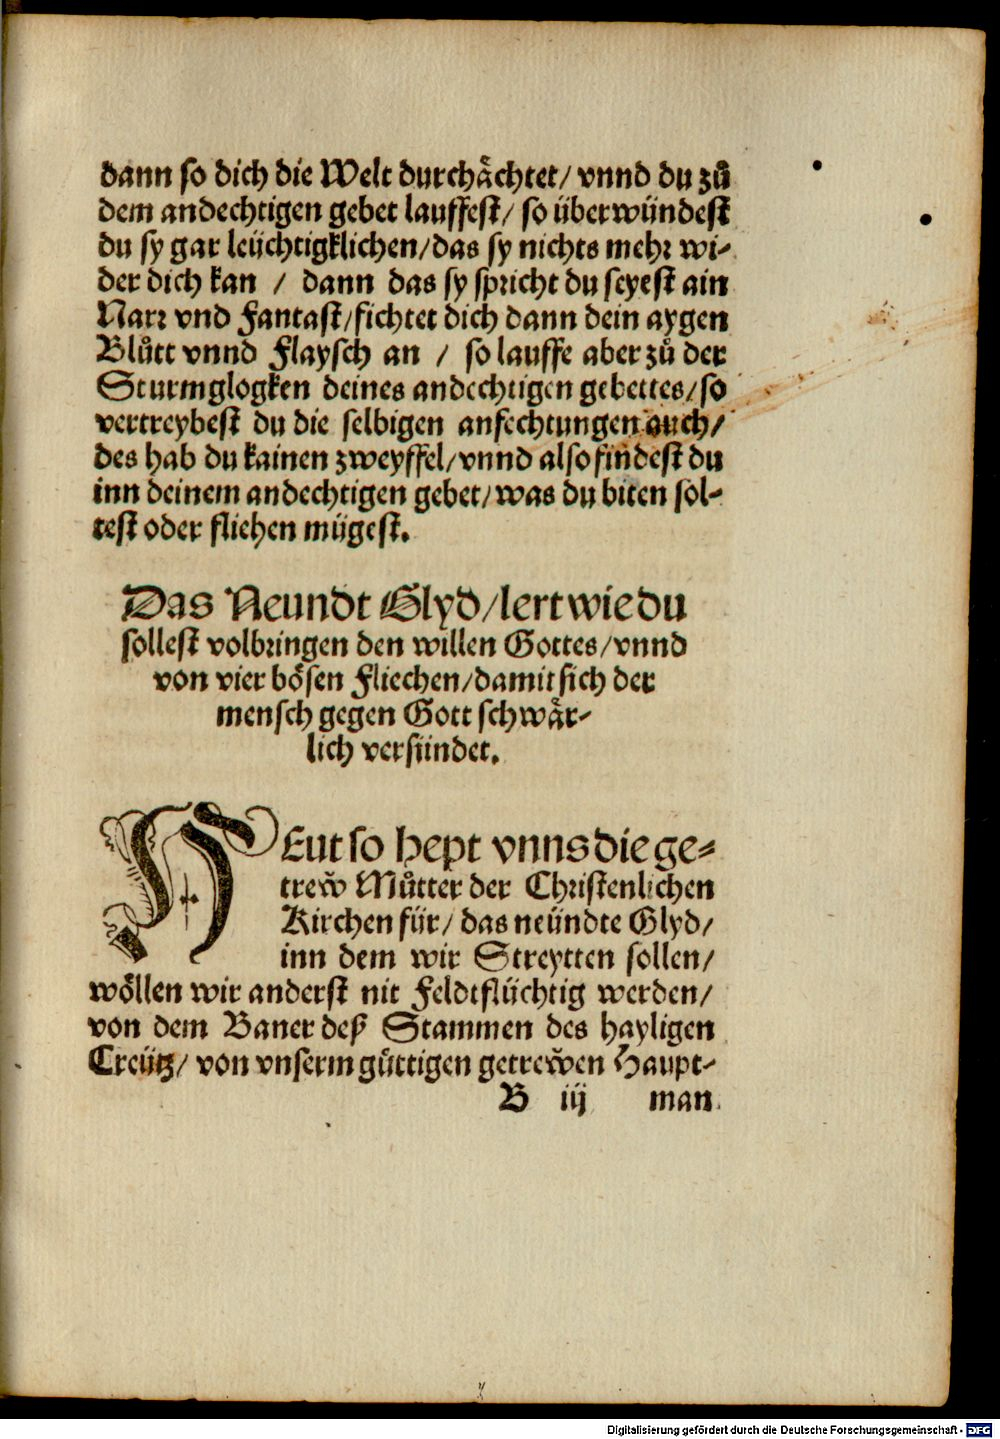 dann so dich die Welt durchåchtet/ vnnd du zů
dem andechtigen gebet lauffest/ so überwündest
du sy gar leüchtigklichen/das sy nichts mehr wi-
der dich kan / dann das sy spricht du seyest ain
Narr vnd Fantast/fichtet dich dann dein aygen
Blůtt vnnd Flaysch an / so lauffe aber zů der
Sturmglogken deines andechtigen gebettes/so
vertreybest du die selbigen anfechtungen auch/
des hab du kainen zweyffel/vnnd also findest du
inn deinem andechtigen gebet/was du biten sol-
test oder fliehen mügest.
Das Neundt Glyd/lert wie du
sollest volbringen den willen Gottes/vnnd
von vier bösen Fliechen/damit sich der
mensch gegen Gott schwår-
lich versündet.
HEut so hept vnns die ge-
trew̃ Můtter der Christenlichen
Kirchen für/ das neündte Glyd/
inn dem wir Streytten sollen/
wöllen wir anderst nit Feldtflüchtig werden/
von dem Baner deß Stammen des hayligen
Creütz/ von vnserm güttigen getrew̃en Haupt-
B iij man
Digitalisierung gefördert durch die Deutsche Forschungsgemeinschaft - DFG